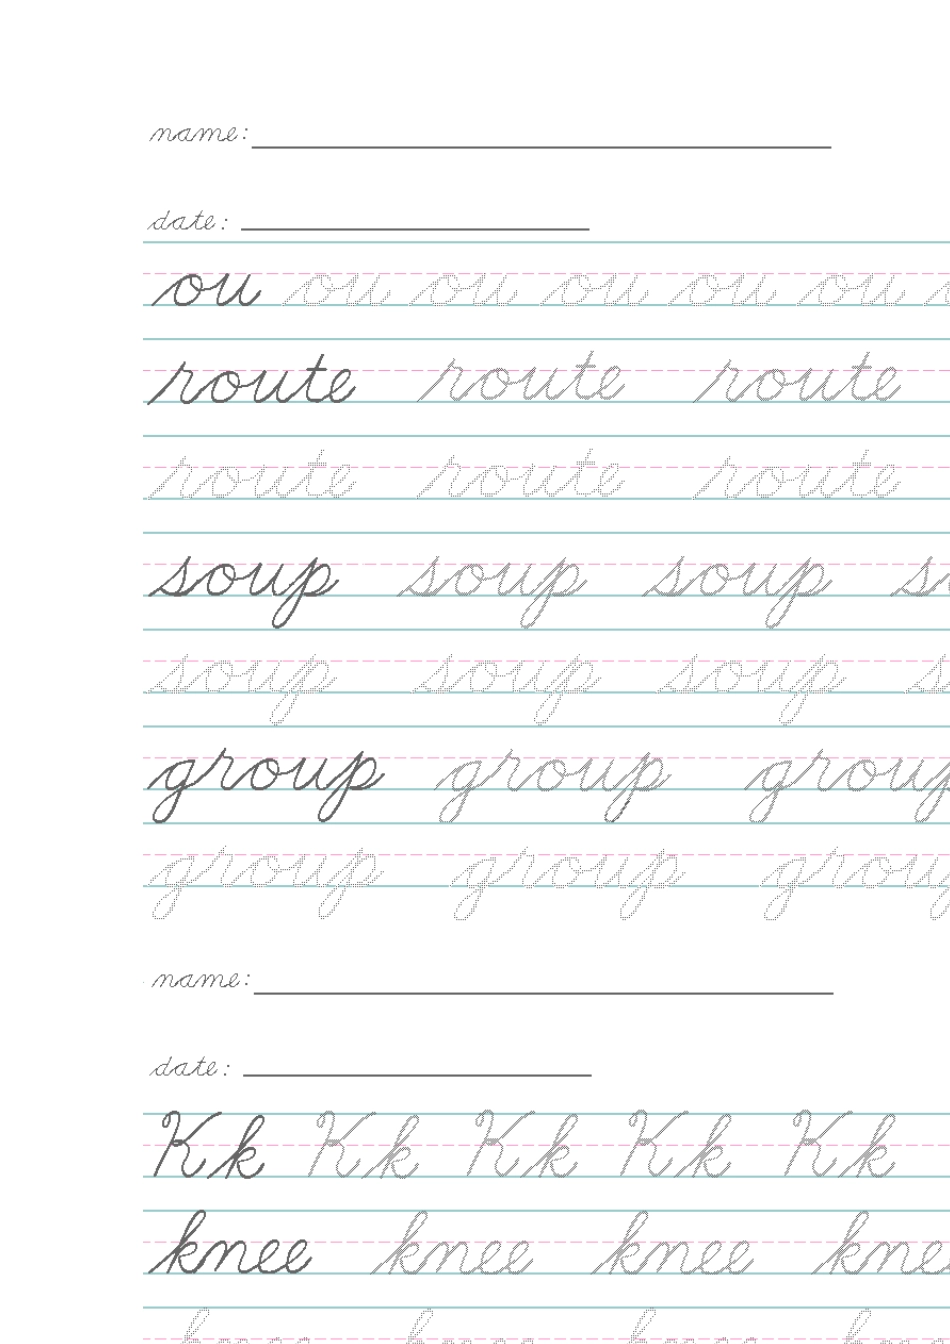 name:
date:
ou ou ou ou ou ou
route route route
route route route
soup soup soup
soup soup soup s
group group group
group group grou
name:
date:
Kk Kk Kk Kk Kk
knee knee knee kne
knee knee knee knee